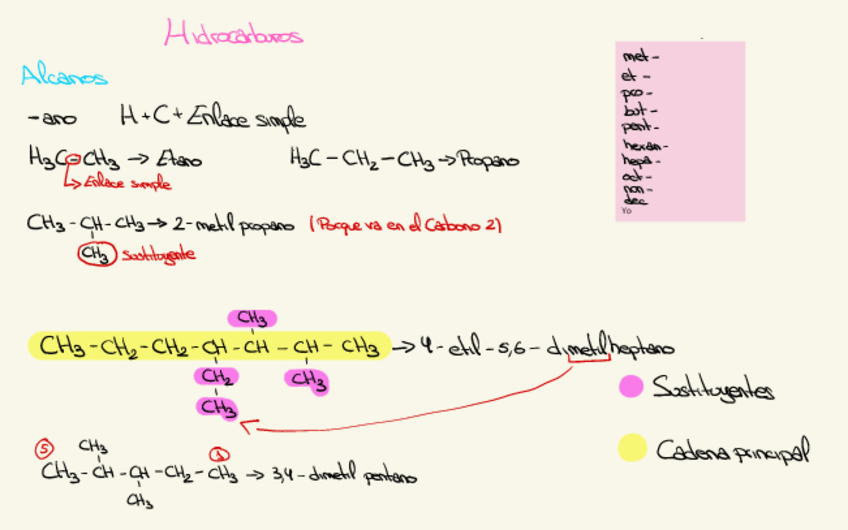 Hidrocarburos
Alcanos
-ano H+C+Enlace simple
H₃C-CH₃ → Etano
Enlace simple
H₃C-CH₂-CH₃ → Propano
CH₃-CH-CH₃ → 2-metil propano (Porque va en el Carbono 2)
CH₃ Sustituyente
met-
et-
pro-
but-
pent-
hexan-
hepa-
oct-
non-
dec
Yo
CH₃
CH₃-CH₂-CH₂-CH-CH-CH-CH₃ → 4-etil-5,6-dimetilheptano
CH₂ CH₃
CH₃
Sustituyentes
Cadena principal
5 CH₃ 1
CH₃-CH-CH-CH₂-CH₃ → 3,4-dimetil pentano
CH₃